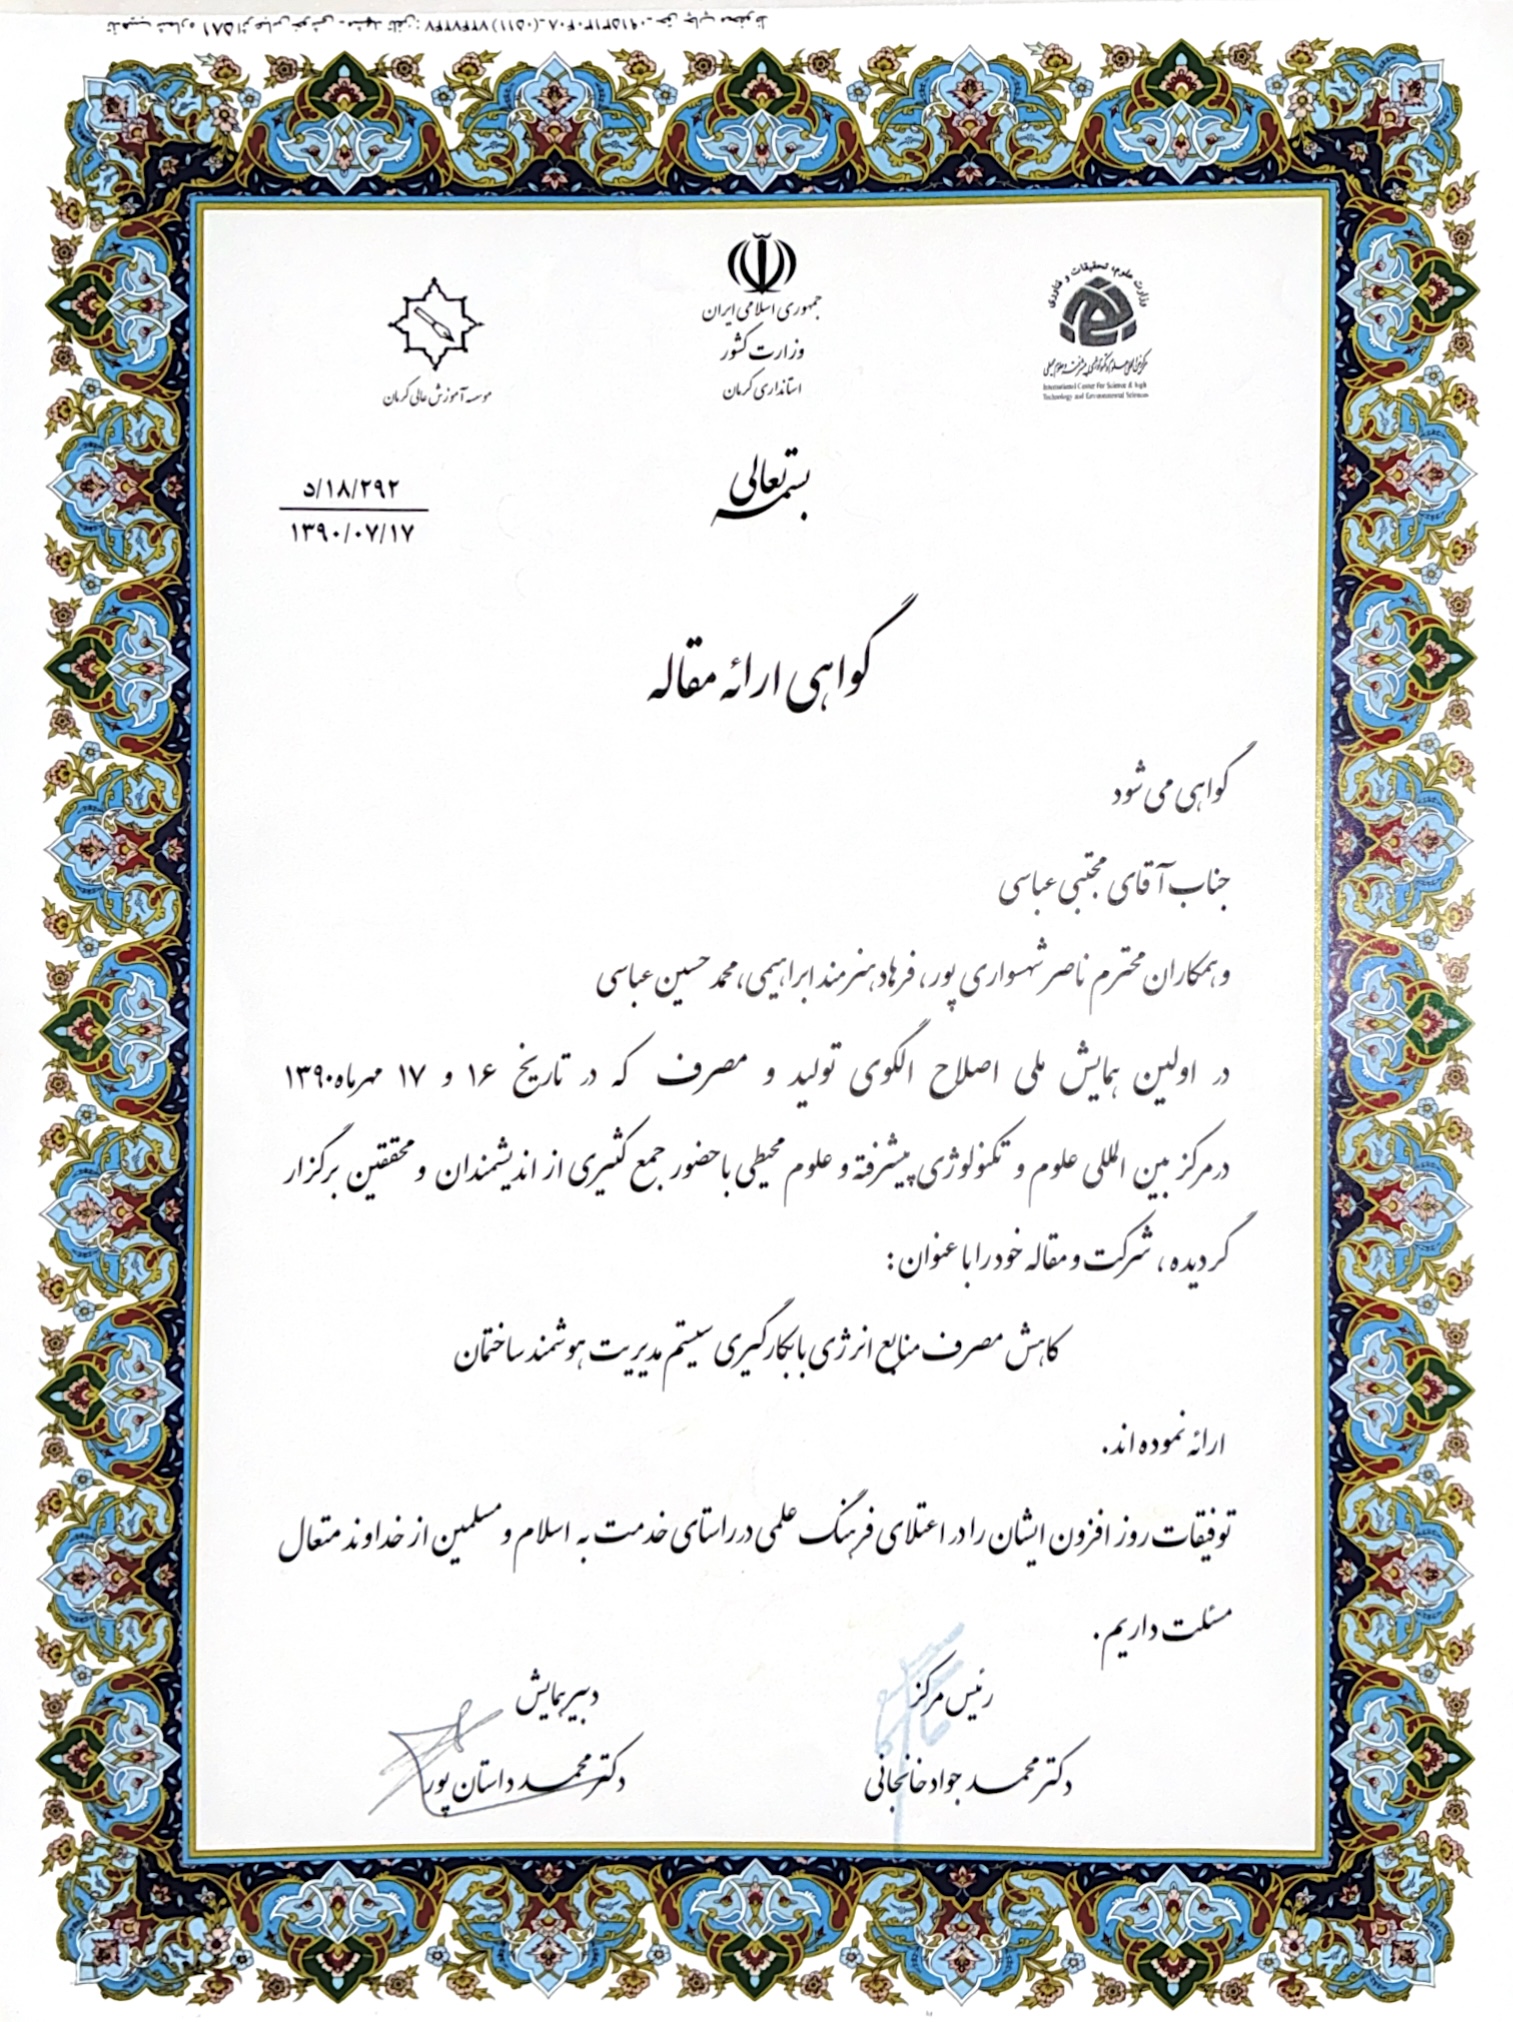 وزارت علوم، تحقیقات و فناوری
International Center for Science & high
Technology and Environmental Sciences
جمهوری اسلامی ایران
وزارت کشور
استانداری کرمان
موسسه آموزش عالی کرمان
بسمه تعالی
۵/۱۸/۲۹۲
۱۳۹۰/۰۷/۱۷
گواهی ارائه مقاله
گواهی می شود
جناب آقای مجتبی عباسی
و همکاران محترم ناصر شهسواری پور، فرهاد هنرمند ابراهیمی، محمد حسین عباسی
در اولین همایش ملی اصلاح الگوی تولید و مصرف که در تاریخ ۱۶ و ۱۷ مهرماه ۱۳۹۰
در مرکز بین المللی علوم و تکنولوژی پیشرفته و علوم محیطی با حضور جمع کثیری از اندیشمندان و محققین برگزار
گردیده ، شرکت و مقاله خود را با عنوان :
کاهش مصرف منابع انرژی با بکارگیری سیستم مدیریت هوشمند ساختمان
ارائه نموده اند.
توفیقات روز افزون ایشان را در اعتلای فرهنگ علمی در راستای خدمت به اسلام و مسلمین از خداوند متعال
مسئلت داریم .
رئیس مرکز
دکتر محمد جواد خانجانی
دبیر همایش
دکتر محمد داستان پور